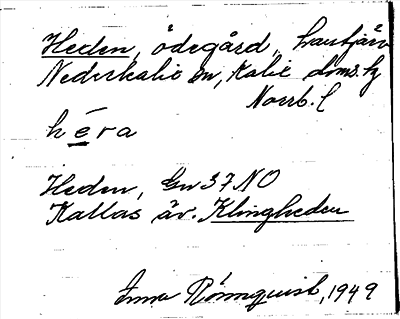 Heden, ödegård, Lansjärv
Nederkalix sn, Kalix doms. hg
Norrb. l
héra
Heden, Gn 37 NO
Kallas äv. Klingheden
Rönnquist, 1949